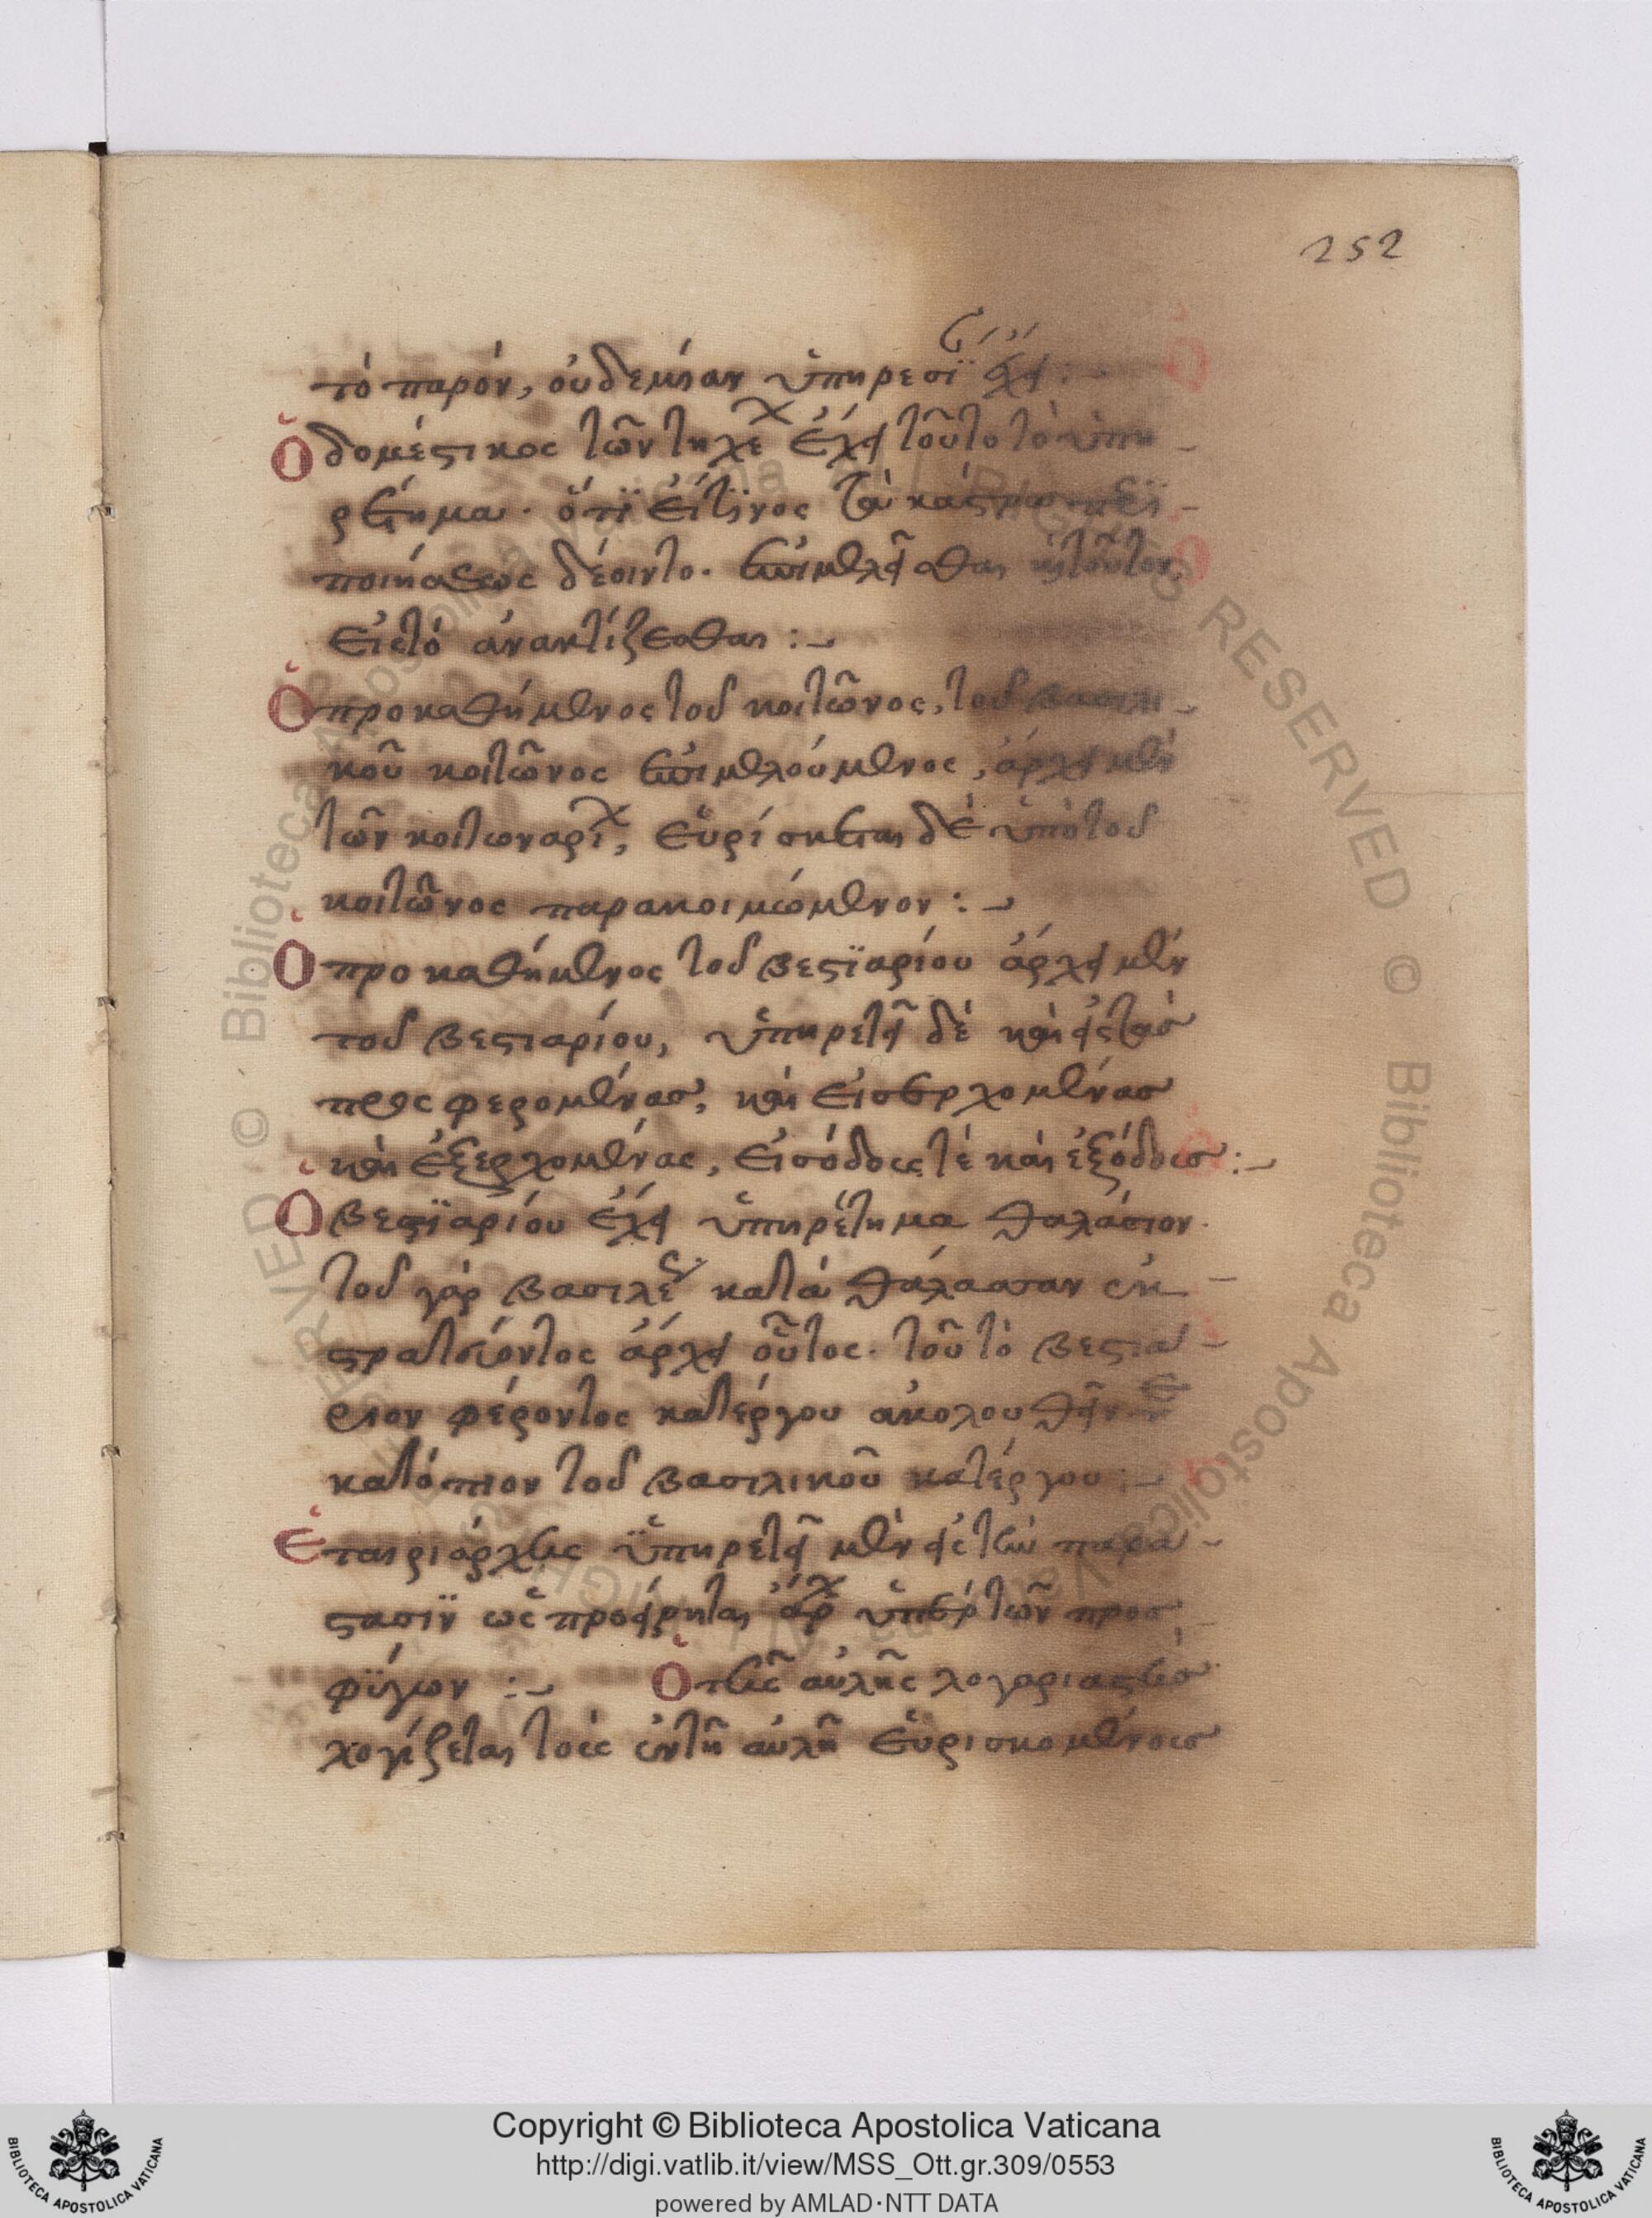 252
τὸ παρόν, οὐδεμίαν ὑπηρεσϊ ἔχει :
Ὁ δομέστικος τῶν τειχε ἔχει τοῦτο τὸ ὑπη-
ρέτημα· ὅτϊ εἴ τϊνος τὰ κάστρα
ποιήσεως δέοιντο. ἐπιμελεῖσθαι
εἰς τὸ ἀνακτίζεσθαι :-
Ὁ προκαθήμενος τοῦ κοιτῶνος, τοῦ βασιλι-
κοῦ κοιτῶνος ἐπιμελούμενος, ἄρχει μὲν
τῶν κοιτωναρι, εὑρίσκεται δὲ ὑπὸ τοῦ
κοιτῶνος παρακοιμώμενον :-
Ὁ προκαθήμενος τοῦ βεστϊαρίου ἄρχει μὲν
τοῦ βεστιαρίου, ὑπηρετεῖ δὲ καὶ εἰς τὰς
προσφερομένας, καὶ εἰσερχομένας
καὶ ἐξερχομένας, εἰσόδοις τὲ καὶ ἐξόδοις :-
Ὁ βεστϊαρίου ἔχει ὑπηρέτημα θαλάσιον·
τοῦ γὰρ βασιλέ κατὰ θάλασσαν ἐκ-
στρατεύοντος ἄρχει οὗτος· τοῦ τὸ βεστιά-
ριον φέροντος κατέργου ἀκολουθεῖν
κατόπιον τοῦ βασιλικοῦ κατέργου :-
Ἑταιριάρχης ὑπηρετεῖ μὲν εἰς τὴν παρά-
στασϊν ὡς προείρηται, ἄρ ὑπὲρ τῶν προσ
φϋγων :- Ὁ τῆς αὐλῆς λογαριαστὴς
λογίζεται τοῖς ἐν τῇ αὐλῇ εὑρισκομένοις
Copyright © Biblioteca Apostolica Vaticana
http://digi.vatlib.it/view/MSS_Ott.gr.309/0553
powered by AMLAD·NTT DATA